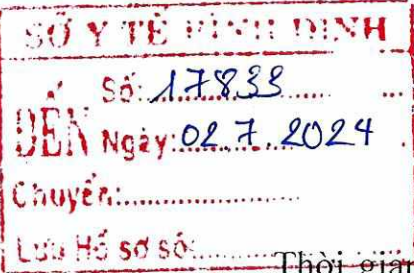 SỞ Y TẾ BÌNH ĐỊNH
ĐẾN
Số: 17833
Ngày: 02.7.2024
Chuyển:
Lưu Hồ sơ số:
Thời gian